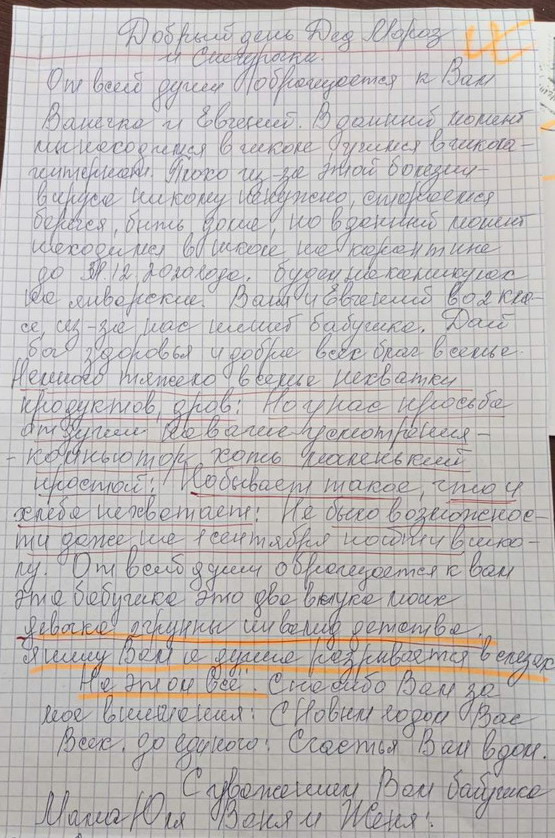 Добрый день Дед Мороз
и Снегурочка.
От всей души оброщается к Вам
Ванечка и Евгений. В данний момент
мы находимся в школе учимся в школа-
интернат. Плохо из-за этой болезни-
вируса никому ненужно, стараемся
берегся, быть дома, но в данний момент
находимся в школе на карантине
до 31.12.2020 года. будем на каникулах
на январские. Ваня и Евгений во 2 кла-
се, из-за нас пишит бабушка. Дай
бог здоровья и добра всех благ в семье.
Немного тяжело в семье нехватки
продуктов, дров: Но у нас просьба
от души на ваше усмотрения-
- компьютор хоть маленький
простой: Но бывает такое, что и
хлеба нехватает: Не было возможнос-
ти даже на 1 сентября пойти в шко-
лу. От всей души оброщается к вам
это бабушка это два внука моих
девочка группы инвалид детства,
я пишу Вам а душа разривается в слезах
На этом всё. Спасибо Вам за
мое внимания: С Новим годом Вас
Всех. до единого: Счастья Вам в дом.
С уважением Вам бабушка
Мама Юля Ваня и Женя: